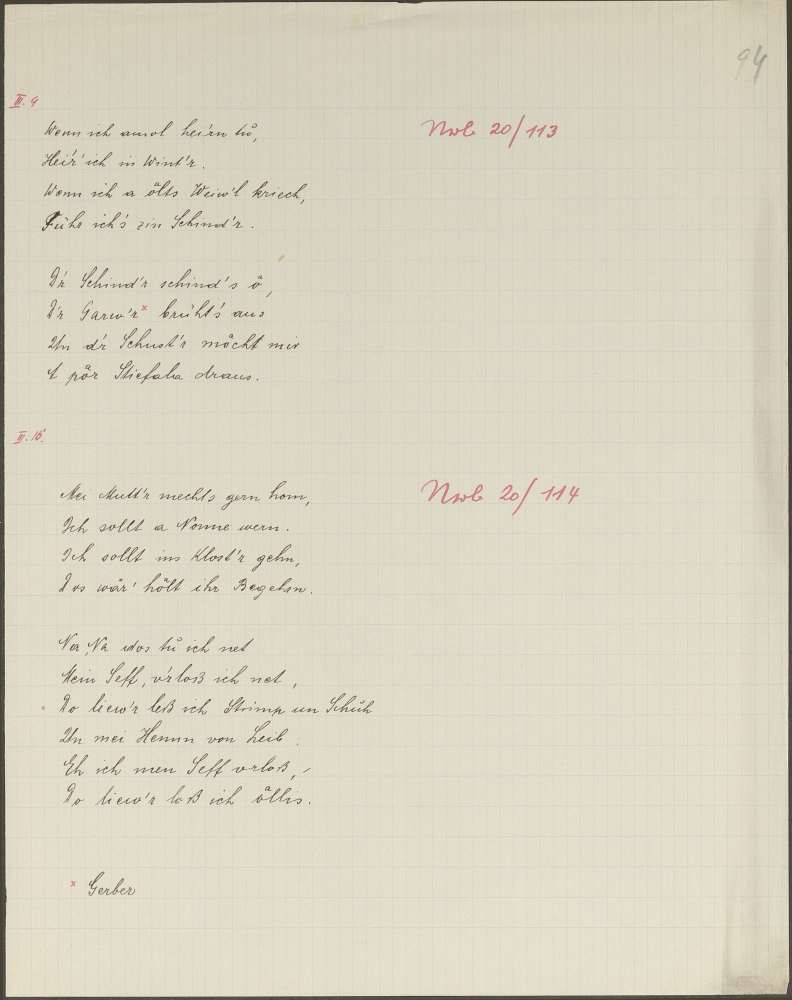 94
III. 9
Wenn ich amol hei'rn tů, Nwb 20/113
Hei'r' ich in Wint'r.
Wenn ich a ölts Weiw'l kriech,
Führ ich's zin Schind'r.
D'r Schind'r schind's å,
D'r Garw'r x brüht's aus
Un d'r Schust'r mächt mir
A pår Stiefala draus.
III. 16.
Mei Mutt'r mechts gern hom, Nwb 20/114
Ich sollt a Nonne wern.
Ich sollt ins Klost'r gehn,
Dos wär' hålt ihr Begehrn.
Na, Na dos tů ich net
Mein Seff, v'rloß ich net,
Do liew'r leß ich Strimp un Schůh
Un mei Hemm von Leib.
Eh ich men Seff v'rloß, –
Do liew'r loß ich ållis.
x Gerber